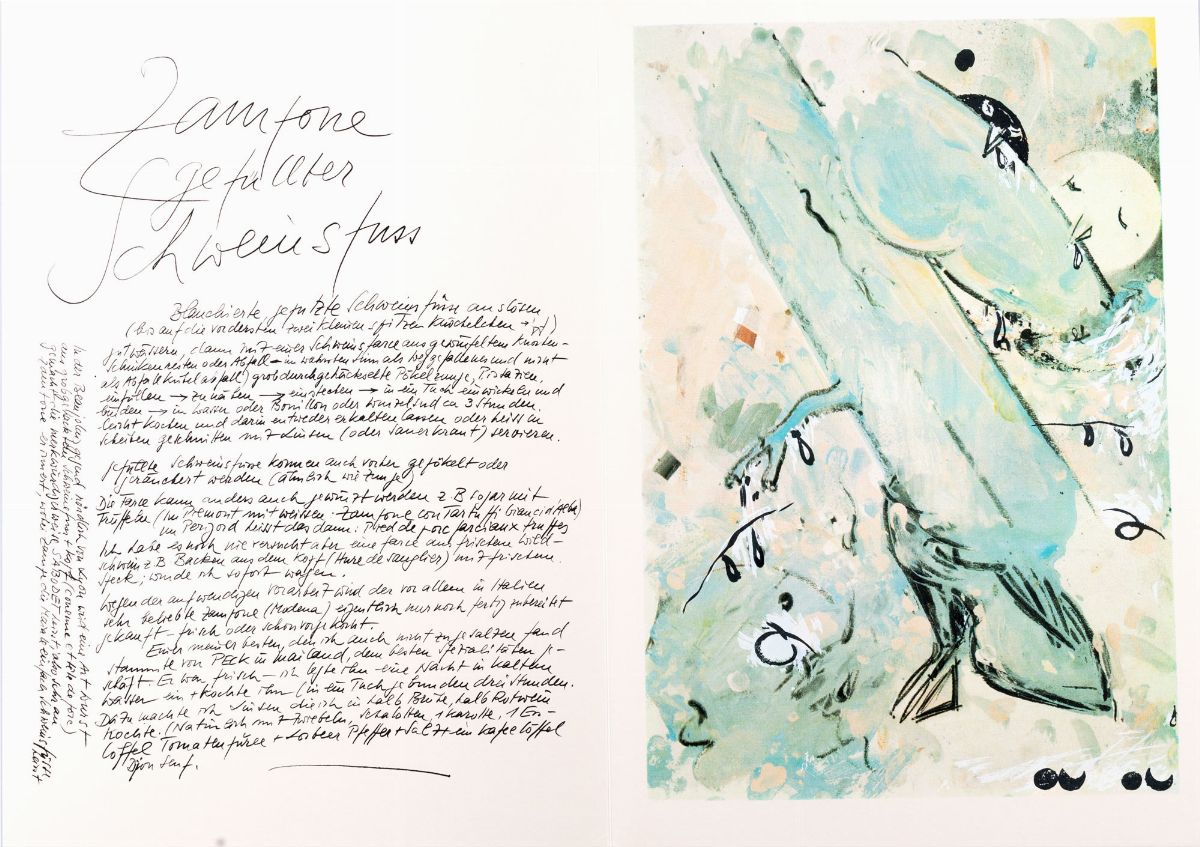 Zampone
gefüllter
Schweinsfuss
Blanchierte geputzte Schweinsfüsse auslösen
(bis auf die vordersten zwei kleinen spitzen Knöchelchen →
gut wässern, dann mit einer Schweinsfarce aus gewürfelten Knochen-
Schinkenresten oder Abfall – im wahrsten Sinn als weggefallenes und nicht
als Abfallkübelabfall) grob durchgehackselte Pökelzunge, Pistazien,
einfüllen → zu nähen → einstechen → in ein Tuch einwickeln und
binden → in Wasser oder Bouillon oder Wurzelsud ca 3 Stunden.
leicht kochen und darin entweder erkalten lassen oder heiss in
Scheiben geschnitten mit Linsen (oder Sauerkraut) servieren.
gefüllte Schweinsfüsse können auch vorher gepökelt oder
geräuchert werden (ähnlich wie Zunge)
Die Farce kann anders auch gewürzt werden z B sogar mit
Trüffeln (im Piemont mit weissen. Zampone con Tartuffi bianci d'Alba)
im Perigord heisst das dann: Pied de porc farci aux truffes
Ich habe es noch nie versucht aber eine Farce aus frischem Wild-
schwein z B Backen aus dem Kopf (Hure de sanglier) mit frischem
Speck; würde ich sofort wagen.
Wegen der aufwendigen Vorarbeit wird der vor allem in Italien
sehr beliebte Zampone (Modena) eigentlich nur noch fertig zubereitet
gekauft – frisch oder schon vorgekocht.
Einer meiner besten, den ich auch nicht zu gesalzen fand
stammte von PECK in Mailand, dem besten Spezialitäten ge-
schäft. Er war frisch – ich legte ihn eine Nacht in kaltem
Wasser ein + kochte ihn (in ein Tuch gebunden drei Stunden.
Dazu machte ich Linsen die ich in halb Brühe, halb Rotwein
kochte. (Natürlich mit Zwiebeln, Schalotten, 1 Karotte, 1 Ess-
löffel Tomatenpüree + Lorbeer Pfeffer + Salz + ein Kaffeelöffel
Dijon Senf.
In der Beaujolais gegend nördlich von Lyon wird eine Art Wurst
aus grob gehacktem Schweinemit Kopf (couenne et tête de porc)
gemacht die merkwürdigerweise SABODET heisst
Zampone erinnert, wobei Zampe die Haxe